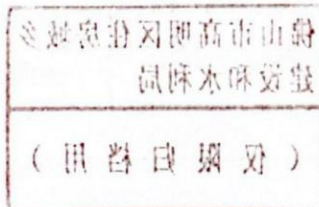 佛山市高明区住房城乡
建设和水利局
（仅限归档用）